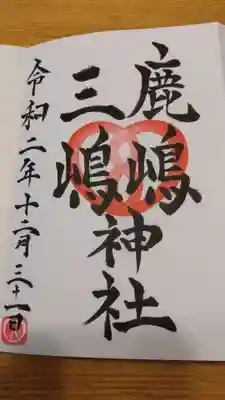 鹿嶋
三嶋
神社
令和二年十二月三十一日